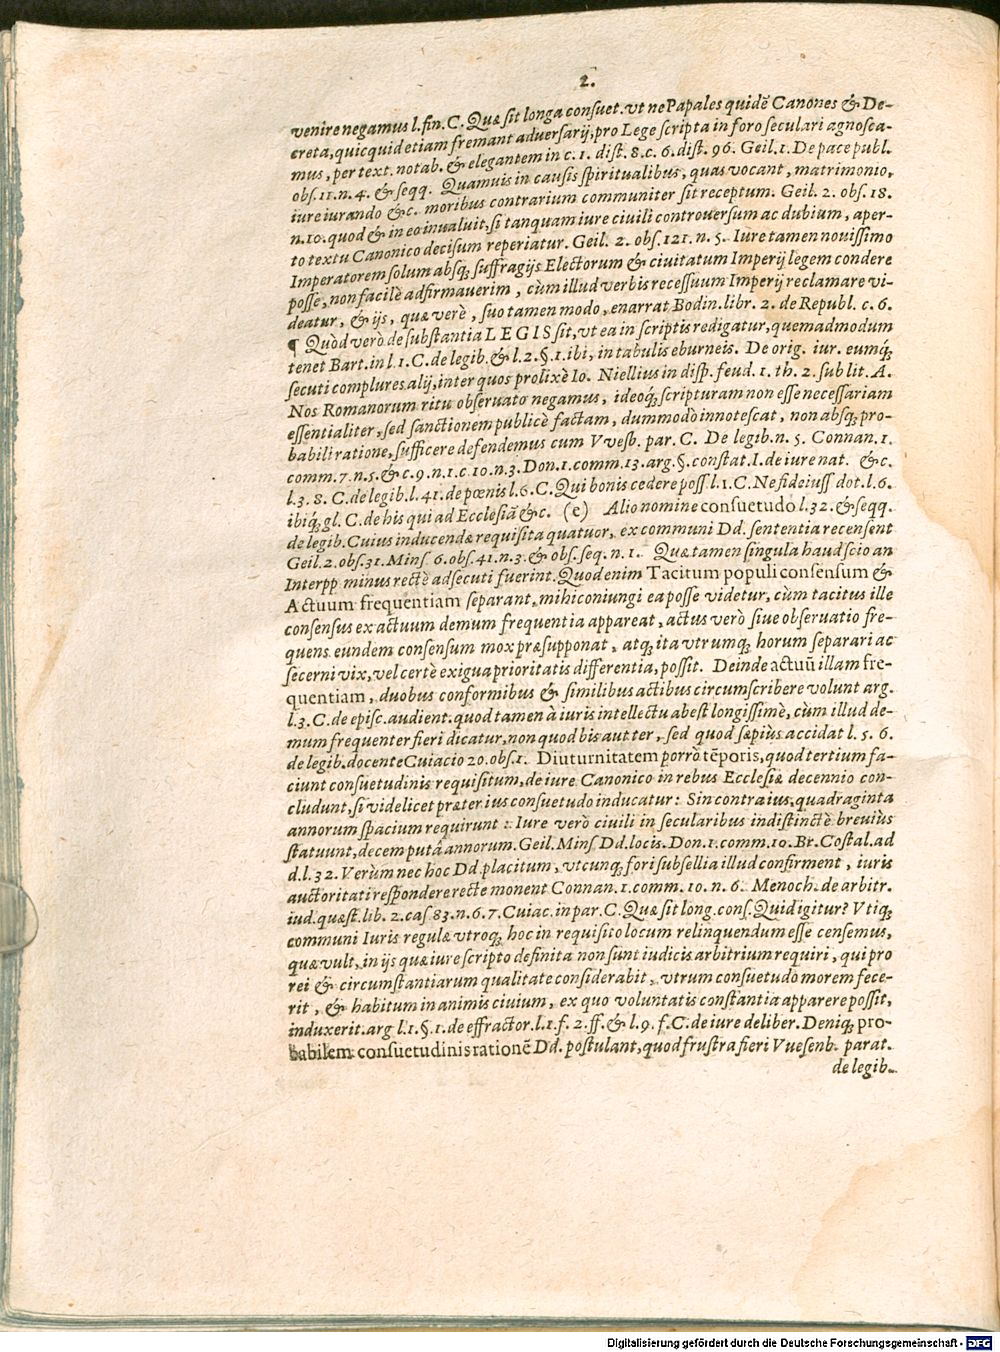 2.
venire negamus l. fin. C. Quæ sit longa consuet. vt ne Papales quidẽ Canones & De-
creta, quicquid etiam fremant adversarij, pro Lege scripta in foro seculari agnosca-
mus, per text. notab. & elegantem in c. 1. dist. 8. c. 6. dist. 96. Geil. 1. De pace publ.
obs. 11. n. 4. & seqq. Quamuis in causis spiritualibus, quas vocant, matrimonio,
iure iurando &c. moribus contrarium communiter sit receptum. Geil. 2. obs. 18.
n. 10. quod & in eo inualuit, si tanquam iure ciuili controuersum ac dubium, aper-
to textu Canonico decisum reperiatur. Geil. 2. obs. 121. n. 5. Iure tamen nouissimo
Imperatorem solum absq; suffragijs Electorum & ciuitatum Imperij legem condere
posse, non facilè adfirmauerim, cùm illud verbis recessuum Imperij reclamare vi-
deatur, & ijs, quæ verè, suo tamen modo, enarrat Bodin. libr. 2. de Republ. c. 6.
¶ Quòd verò de substantia LEGIS sit, vt ea in scriptis redigatur, quemadmodum
tenet Bart. in l. 1. C. de legib. & l. 2. §. 1. ibi, in tabulis eburneis. De orig. iur. eumq́;
secuti complures alij, inter quos prolixè Io. Niellius in disp. feud. 1. th. 2. sub lit. A.
Nos Romanorum ritu obseruato negamus, ideoq́; scripturam non esse necessariam
essentialiter, sed sanctionem publicè factam, dummodò innotescat, non absq; pro-
babili ratione, sufficere defendemus cum Vvesb. par. C. De legib. n. 5. Connan. 1.
comm. 7. n. 5. & c. 9. n. 1. c. 10. n. 3. Don. 1. comm. 13. arg. §. constat. I. de iure nat. &c.
l. 3. 8. C. de legib. l. 41. de pœnis l. 6. C. Qui bonis cedere poss. l. 1. C. Ne fideiuss. dot. l. 6.
ibiq́; gl. C. de his qui ad Ecclesiã &c. (e) Alio nomine consuetudo l. 32. & seqq.
de legib. Cuius inducendæ requisita quatuor, ex communi Dd. sententia recensent
Geil. 2. obs. 31. Mins. 6. obs. 41. n. 3. & obs. seq. n. 1. Quæ tamen singula haud scio an
Interpp minus rectè adsecuti fuerint. Quod enim Tacitum populi consensum &
Actuum frequentiam separant, mihi coniungi ea posse videtur, cùm tacitus ille
consensus ex actuum demum frequentia appareat, actus verò siue obseruatio fre-
quens eundem consensum mox præsupponat, atq; ita vtrumq; horum separari ac
secerni vix, vel certè exigua prioritatis differentia, possit. Deinde actuũ illam fre-
quentiam, duobus conformibus & similibus actibus circumscribere volunt arg.
l. 3. C. de episc. audient. quod tamen à iuris intellectu abest longissimè, cùm illud de-
mum frequenter fieri dicatur, non quod bis aut ter, sed quod sæpiùs accidat l. 5. 6.
de legib. docente Cuiacio 20. obs. 1. Diuturnitatem porrò tẽporis, quod tertium fa-
ciunt consuetudinis requisitum, de iure Canonico in rebus Ecclesiæ decennio con-
cludunt, si videlicet præter ius consuetudo inducatur: Sin contra ius, quadraginta
annorum spacium requirunt: Iure verò ciuili in secularibus indistinctè breuiùs
statuunt, decem putâ annorum. Geil. Mins. Dd. locis. Don. 1. comm. 10. Br. Costal. ad
d. l. 32. Verùm nec hoc Dd placitum, vtcunq; fori subsellia illud confirment, iuris
auctoritati respondere recte monent Connan. 1. comm. 10. n. 6. Menoch. de arbitr.
iud. quæst. lib. 2. cas 83. n. 6. 7. Cuiac. in par. C. Quæ sit long. cons. Quid igitur? Vtiq;
communi Iuris regulæ vtroq; hoc in requisito locum relinquendum esse censemus,
quæ vult, in ijs quæ iure scripto definita non sunt iudicis arbitrium requiri, qui pro
rei & circumstantiarum qualitate considerabit, vtrum consuetudo morem fece-
rit, & habitum in animis ciuium, ex quo voluntatis constantia apparere possit,
induxerit. arg l. 1. §. 1. de effractor. l. 1. f. 2. ff. & l. 9. f. C. de iure deliber. Deniq; pro-
babilem consuetudinis rationẽ Dd. postulant, quod frustra fieri Vuesenb. parat.
de legib.
Digitalisierung gefördert durch die Deutsche Forschungsgemeinschaft - DFG